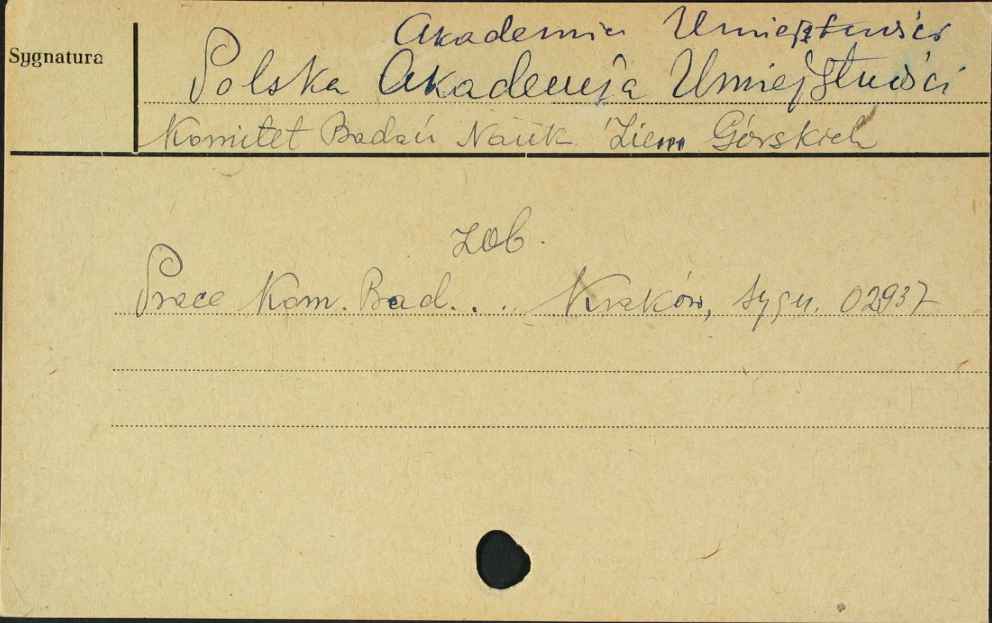 Akademia Umiejętności
Sygnatura
Polska Akademja Umiejętności
Komitet Badań Nauk Ziem Górskich
zob.
Prace Kom. Bad. . .. Kraków, sygn. 02937